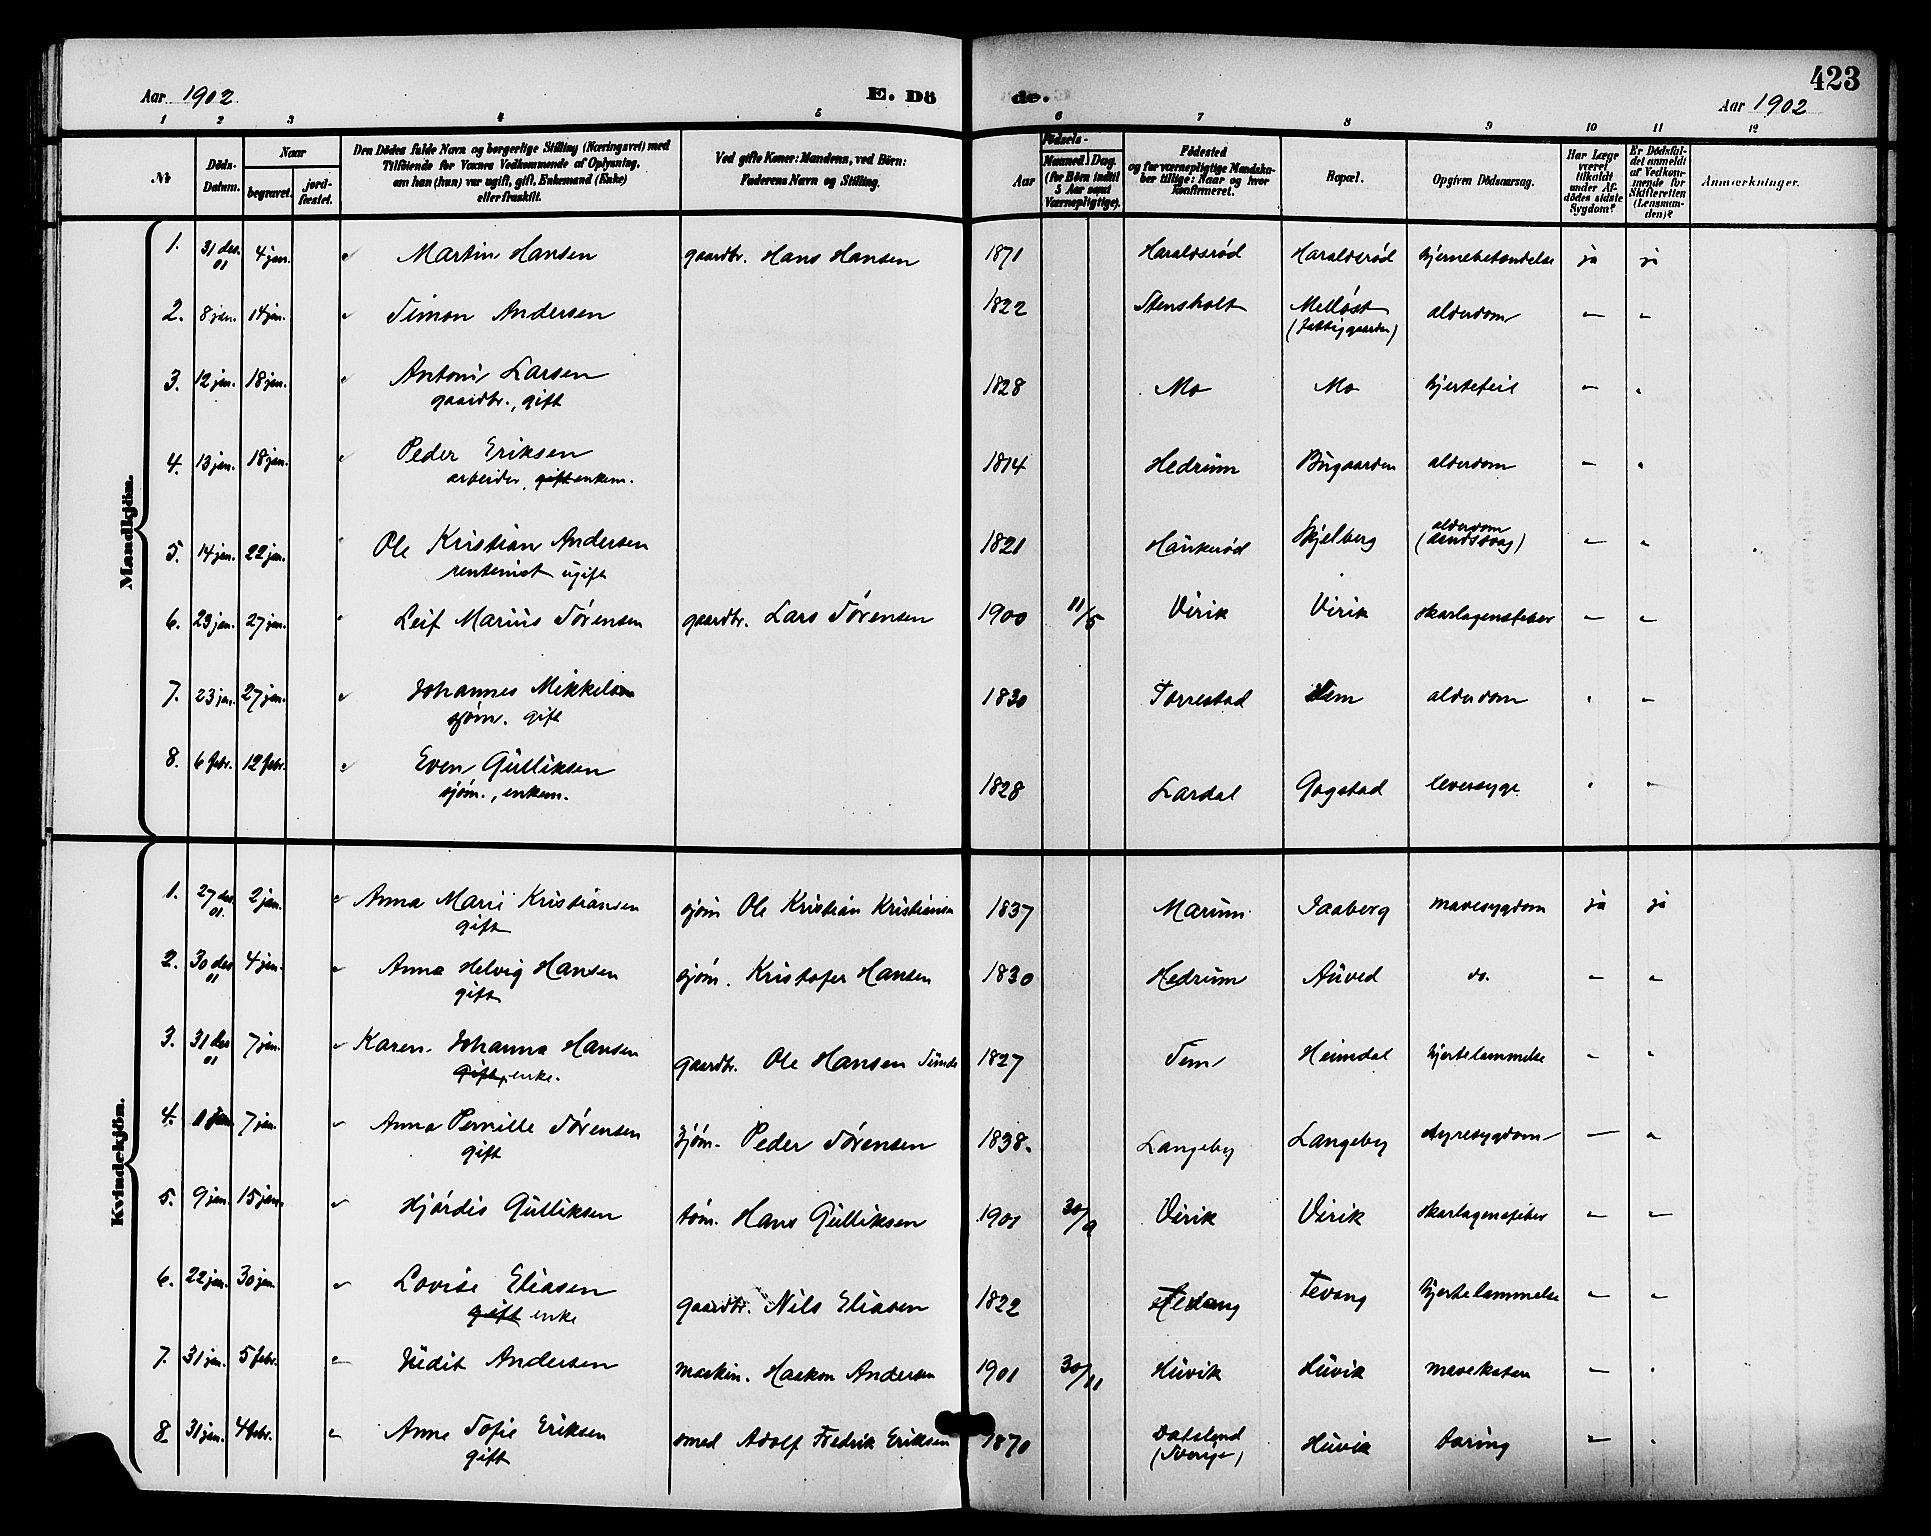 423
Aar 1902 E. Dö de. Aar 1902
1 2 3 4 5 6 7 8 9 10 11 12
No. Döds-Datum. Naar begravet. jord-fæstet. Den Dödes fulde Navn og borgerlige Stilling (Næringsvei) med Tilföiende for Voxnes Vedkommende af Oplysning, om han (hun) var ugift, gift, Enkemand (Enke) eller fraskilt. Ved gifte Koner: Mandens, ved Börn: Faderens Navn og Stilling. Födsels- Aar Maaned Dag. (for Börn indtil 5 Aar samt Værnepligtige). Födested og for værnepligtige Mandskaber tillige: Naar og hvor Konfirmeret. Bopæl. Opgiven Dödsaarsag. Har Læge været tilkaldt under Afdödes sidste Sygdom? Er Dödsfaldet anmeldt af Vedkommende for Skifteretten (Lensmanden)? Anmærkninger.
Mandkjön.
1. 31 des. 01 4 jan. " Martin Hansen gaardbr. Hans Hansen 1871 Haraldsrød Haraldsrød hjernebetændelse ja ja
2. 8 jan. 14 jan. " Simon Andersen 1822 Stensholt Melløst (fattiggaarden) alderdom " "
3. 12 jan. 18 jan. " Anton Larsen 1828 Mo Mo hjertefeil " "
gaardbr., gift
4. 13 jan. 18 jan. " Peder Eriksen 1814 Hedrum Bugaarden alderdom " "
arbeider, gift enkem.
5. 14 jan. 22 jan. " Ole Kristian Andersen 1821 Haukerød Skjelberg alderdom (aandssvag) " "
rentenist ugift
6. 23 jan. 27 jan. " Leif Marius Sørensen gaardbr. Lars Sørensen 1900 11/5 Virik Virik skarlagensfeber " "
7. 23 jan. 27 jan. " Johannes Mikkelsen 1830 Torrestad Sem alderdom " "
sjøm. gift
8. 6 febr. 12 febr. " Even Gulliksen 1828 Lardal Gogstad leversyge " "
sjøm., enkem.
Kvindekjön.
1. 27 des. 01. 2 jan. " Anna Marie Kristiansen sjøm Ole Kristian Kristiansen 1837 Marum Jaaberg mavesygdom ja ja
gift
2. 30 des 01 4 jan. " Anna Helvig Hansen sjøm. Kristofer Hansen 1830 Hedrum Auved do. " "
gift
3. 31 des 01 7 jan. " Karen Johanna Hansen gaardbr. Ole Hansen 1827 Sem Heimdal hjertelammelse " "
gift, enke.
4. 1 jan 7 jan. " Anna Pernille Sørensen sjøm. Peder Sørensen 1838. Langeby Langeby nyresygdom " "
gift
5. 9 jan. 15 jan. " Hjørdis Gulliksen tøm. Hans Gulliksen 1901 30/9 Virik Virik skarlagensfeber " "
6. 22 jan. 30 jan. " Lovise Eliasen gaardbr. Nils Eliasen 1822 Fevang hjertelammelse " "
gift enke
7. 31 jan. 5 febr. " Judit Andersen maskin. Haakon Andersen 1901 30/11 Huvik Huvik mavekatar " "
8. 31 jan. 4 febr. " Anne Sofie Eriksen smed Adolf Fredrik Eriksen 1870 Dalsland (Sverige) Huvik tæring " "
gift